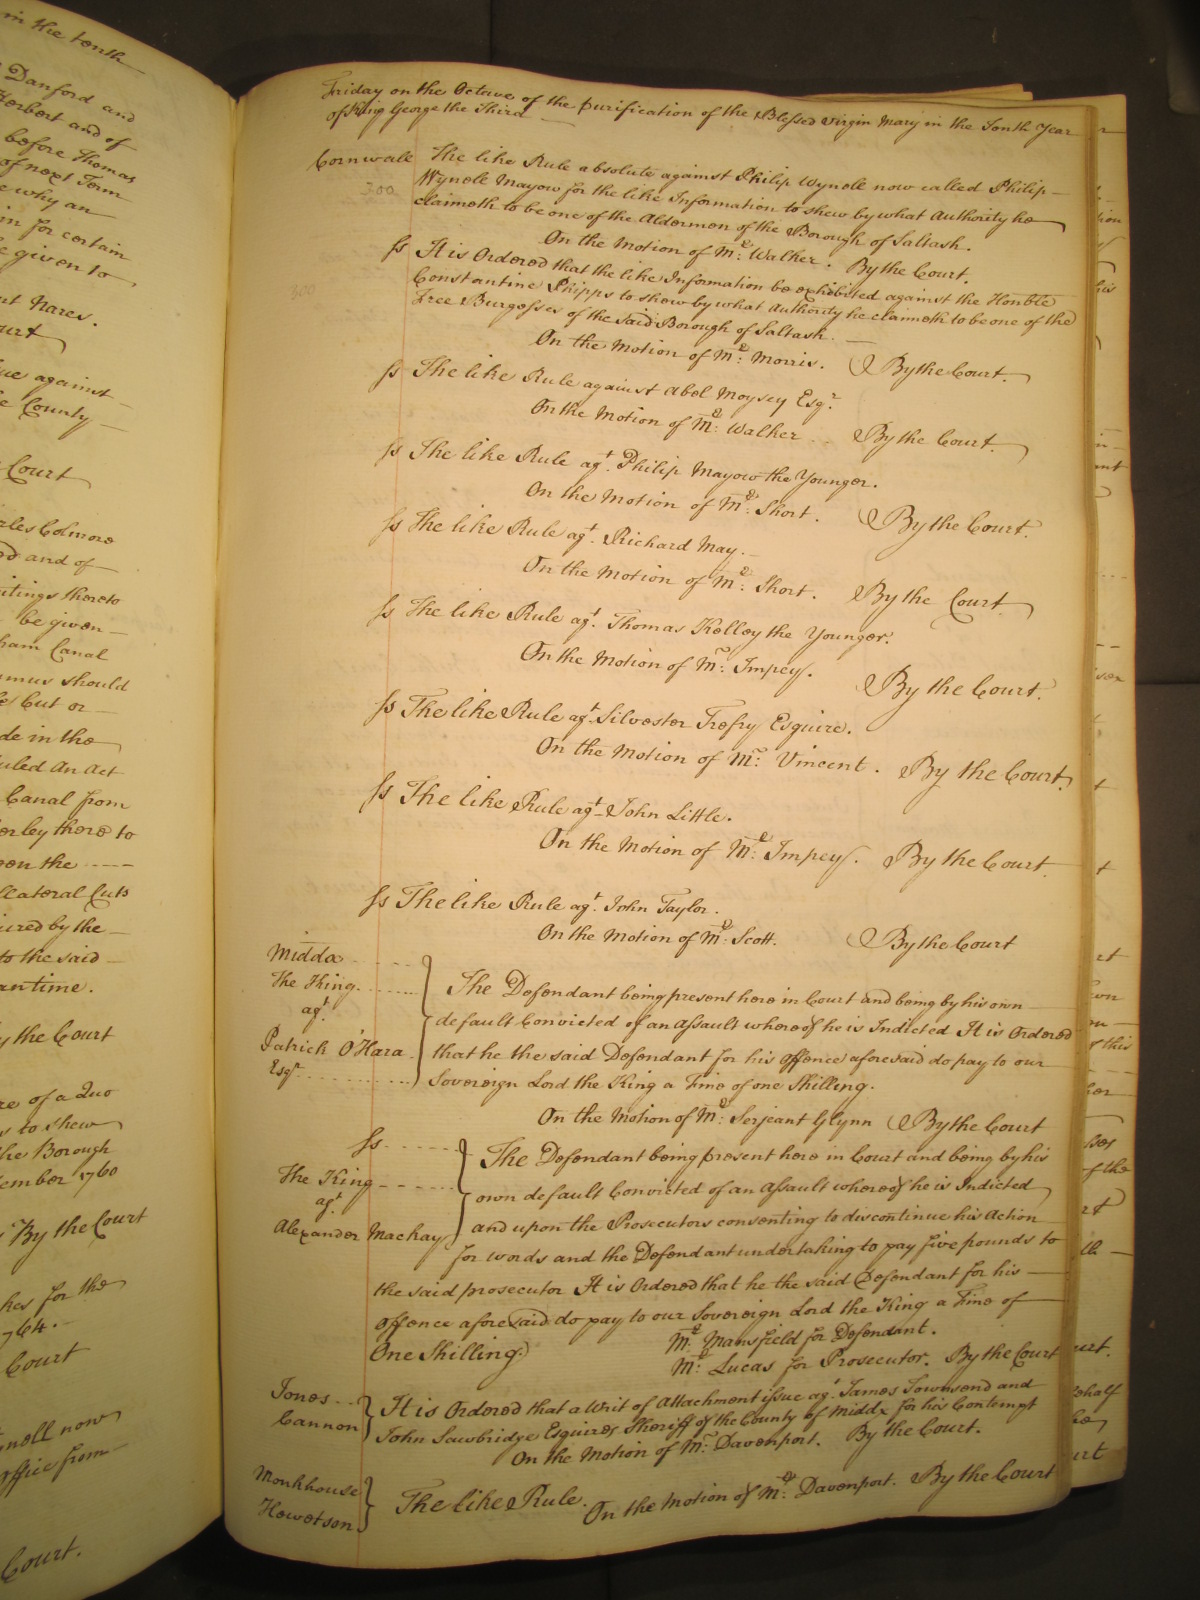 in the tenth
Danford and
Herbert and of
before Thomas
of next Term
why an
in for certain
given to
Nares.
against
County
Court
Colmore
and of
thereto
be given
Canal
should
Cut or
de in the
An Act
Canal from
there to
on the
Cuts
by the
to the said
antime.
the Court
of a Quo
to shew
the Borough
1760
By the Court
for the
1764.
Court
now
office from
Court.
Friday on the Octave of the purification of the Blessed Virgin Mary in the Tenth Year
of King George the Third
Cornwall The like Rule absolute against Philip Wynele now called Philip
300 Wynele Mayow for the like Information to shew by what Authority he
claimeth to be one of the Aldermen of the Borough of Saltash.
On the Motion of Mr: Walker. By the Court.
Ss It is Ordered that the like Information be exhibited against the Honble
300 Constantine Phipps to shew by what Authority he claimeth to be one of the
Free Burgesses of the said Borough of Saltash.
On the Motion of Mr: Morris. By the Court.
Ss The like Rule against Abel Moysey Esqr.
On the Motion of Mr: Walker By the Court.
Ss The like Rule agt. Philip Mayow the Younger.
On the Motion of Mr: Short. By the Court.
Ss The like Rule agt. Richard May.
On the Motion of Mr: Short. By the Court
Ss The like Rule agt. Thomas Kelley the Younger.
On the Motion of Mr: Impey. By the Court.
Ss The like Rule agt. Silvester Trefry Esquire.
On the Motion of Mr: Vincent. By the Court.
Ss The like Rule agt. John Little.
On the Motion of Mr: Impey. By the Court.
Ss The like Rule agt. John Taylor.
On the Motion of Mr: Scott. By the Court
Middx
The King
agt.
Patrick O'Hara
Esqr
The Defendant being present here in Court and being by his own
default Convicted of an Assault whereof he is Indicted It is Ordered
that he the said Defendant for his offence aforesaid do pay to our
Sovereign Lord the King a Fine of one Shilling.
On the Motion of Mr: Serjeant Glynn By the Court
Ss
The King
agt.
Alexander Mackay
The Defendant being present here in Court and being by his
own default Convicted of an Assault whereof he is Indicted
and upon the Prosecutors consenting to discontinue his Action
for words and the Defendant undertaking to pay five pounds to
the said prosecutor It is Ordered that he the said Defendant for his
offence aforesaid do pay to our Sovereign Lord the King a Fine of
One Shilling.
Mr: Mansfield for Defendant.
Mr: Lucas for Prosecutor. By the Court
Jones
Cannon
It is Ordered that a Writ of Attachment issue agt. James Townsend and
John Sawbridge Esquires Sheriff of the County of Middx for his Contempt
On the Motion of Mr: Davenport. By the Court.
Monkhouse
Hewetson
The like Rule.
On the Motion of Mr: Davenport. By the Court